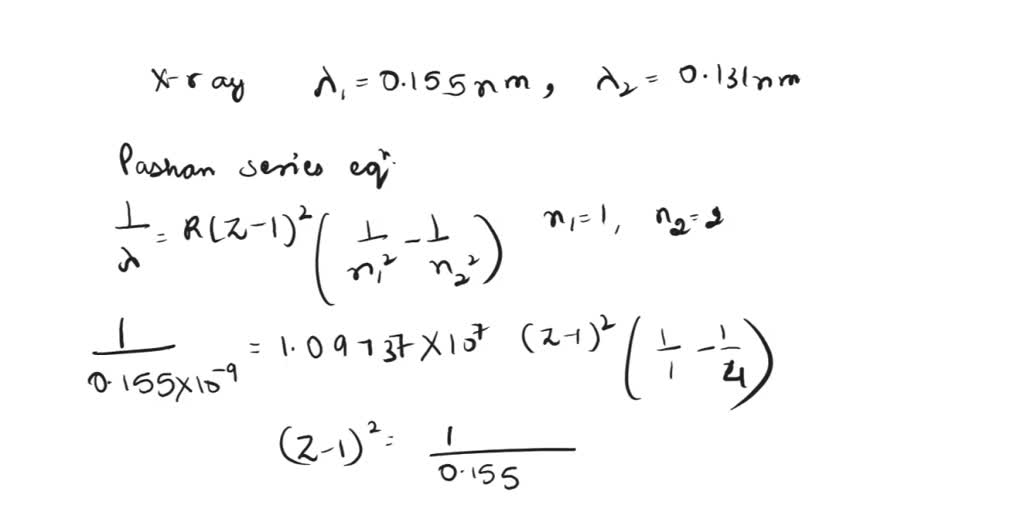 x-ray λ₁ = 0.155nm, λ₂ = 0.131nm
Pashan series eqⁿ.
1/λ = R(Z-1)² (1/n₁² - 1/n₂²) n₁=1, n₂=2
1/0.155×10⁻⁹ = 1.09737×10⁷ (Z-1)² (1/1 - 1/4)
(Z-1)² = 1/0.155